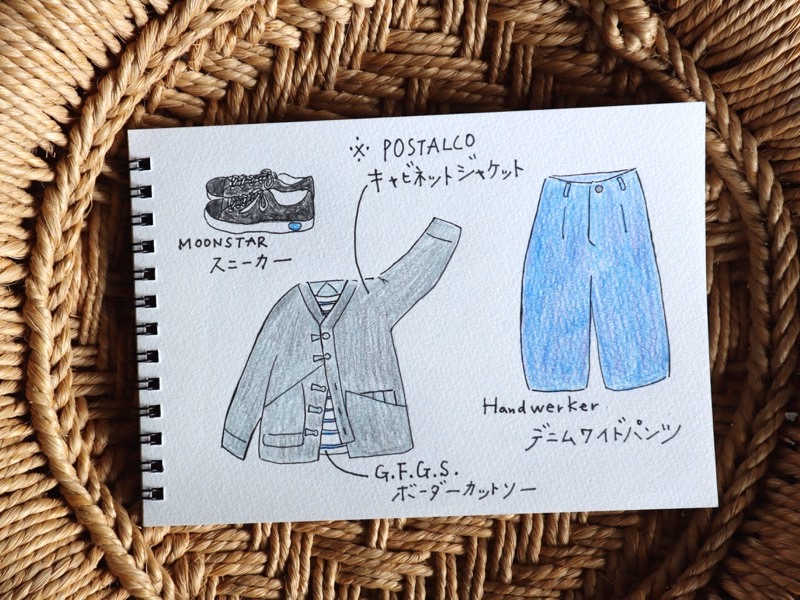 ※ POSTALCO
キャビネットジャケット
MOONSTAR
スニーカー
Handwerker.
デニムワイドパンツ
G.F.G.S.
ボーダーカットソー